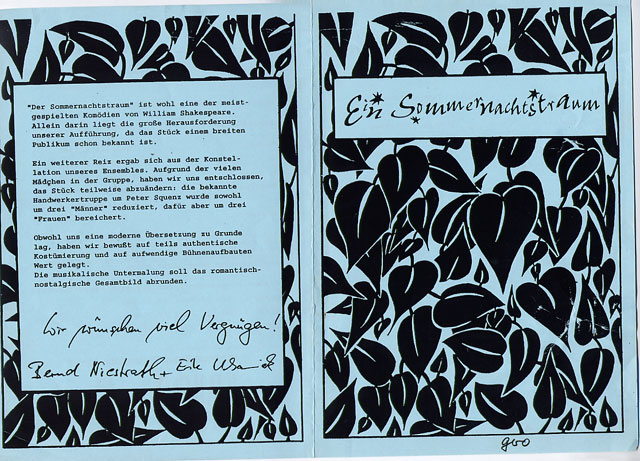 "Der Sommernachtstraum" ist wohl eine der meist-
gespielten Komödien von William Shakespeare.
Allein darin liegt die große Herausforderung
unserer Aufführung, da das Stück einem breiten
Publikum schon bekannt ist.
Ein weiterer Reiz ergab sich aus der Konstel-
lation unseres Ensembles. Aufgrund der vielen
Mädchen in der Gruppe, haben wir uns entschlossen,
das Stück teilweise abzuändern: die bekannte
Handwerkertruppe um Peter Squenz wurde sowohl
um drei "Männer" reduziert, dafür aber um drei
"Frauen" bereichert.
Obwohl uns eine moderne Übersetzung zu Grunde
lag, haben wir bewußt auf teils authentische
Kostümierung und auf aufwendige Bühnenaufbauten
Wert gelegt.
Die musikalische Untermalung soll das romantisch-
nostalgische Gesamtbild abrunden.
Wir wünschen viel Vergnügen!
Bernd Niestrath +
Ein Sommernachtstraum